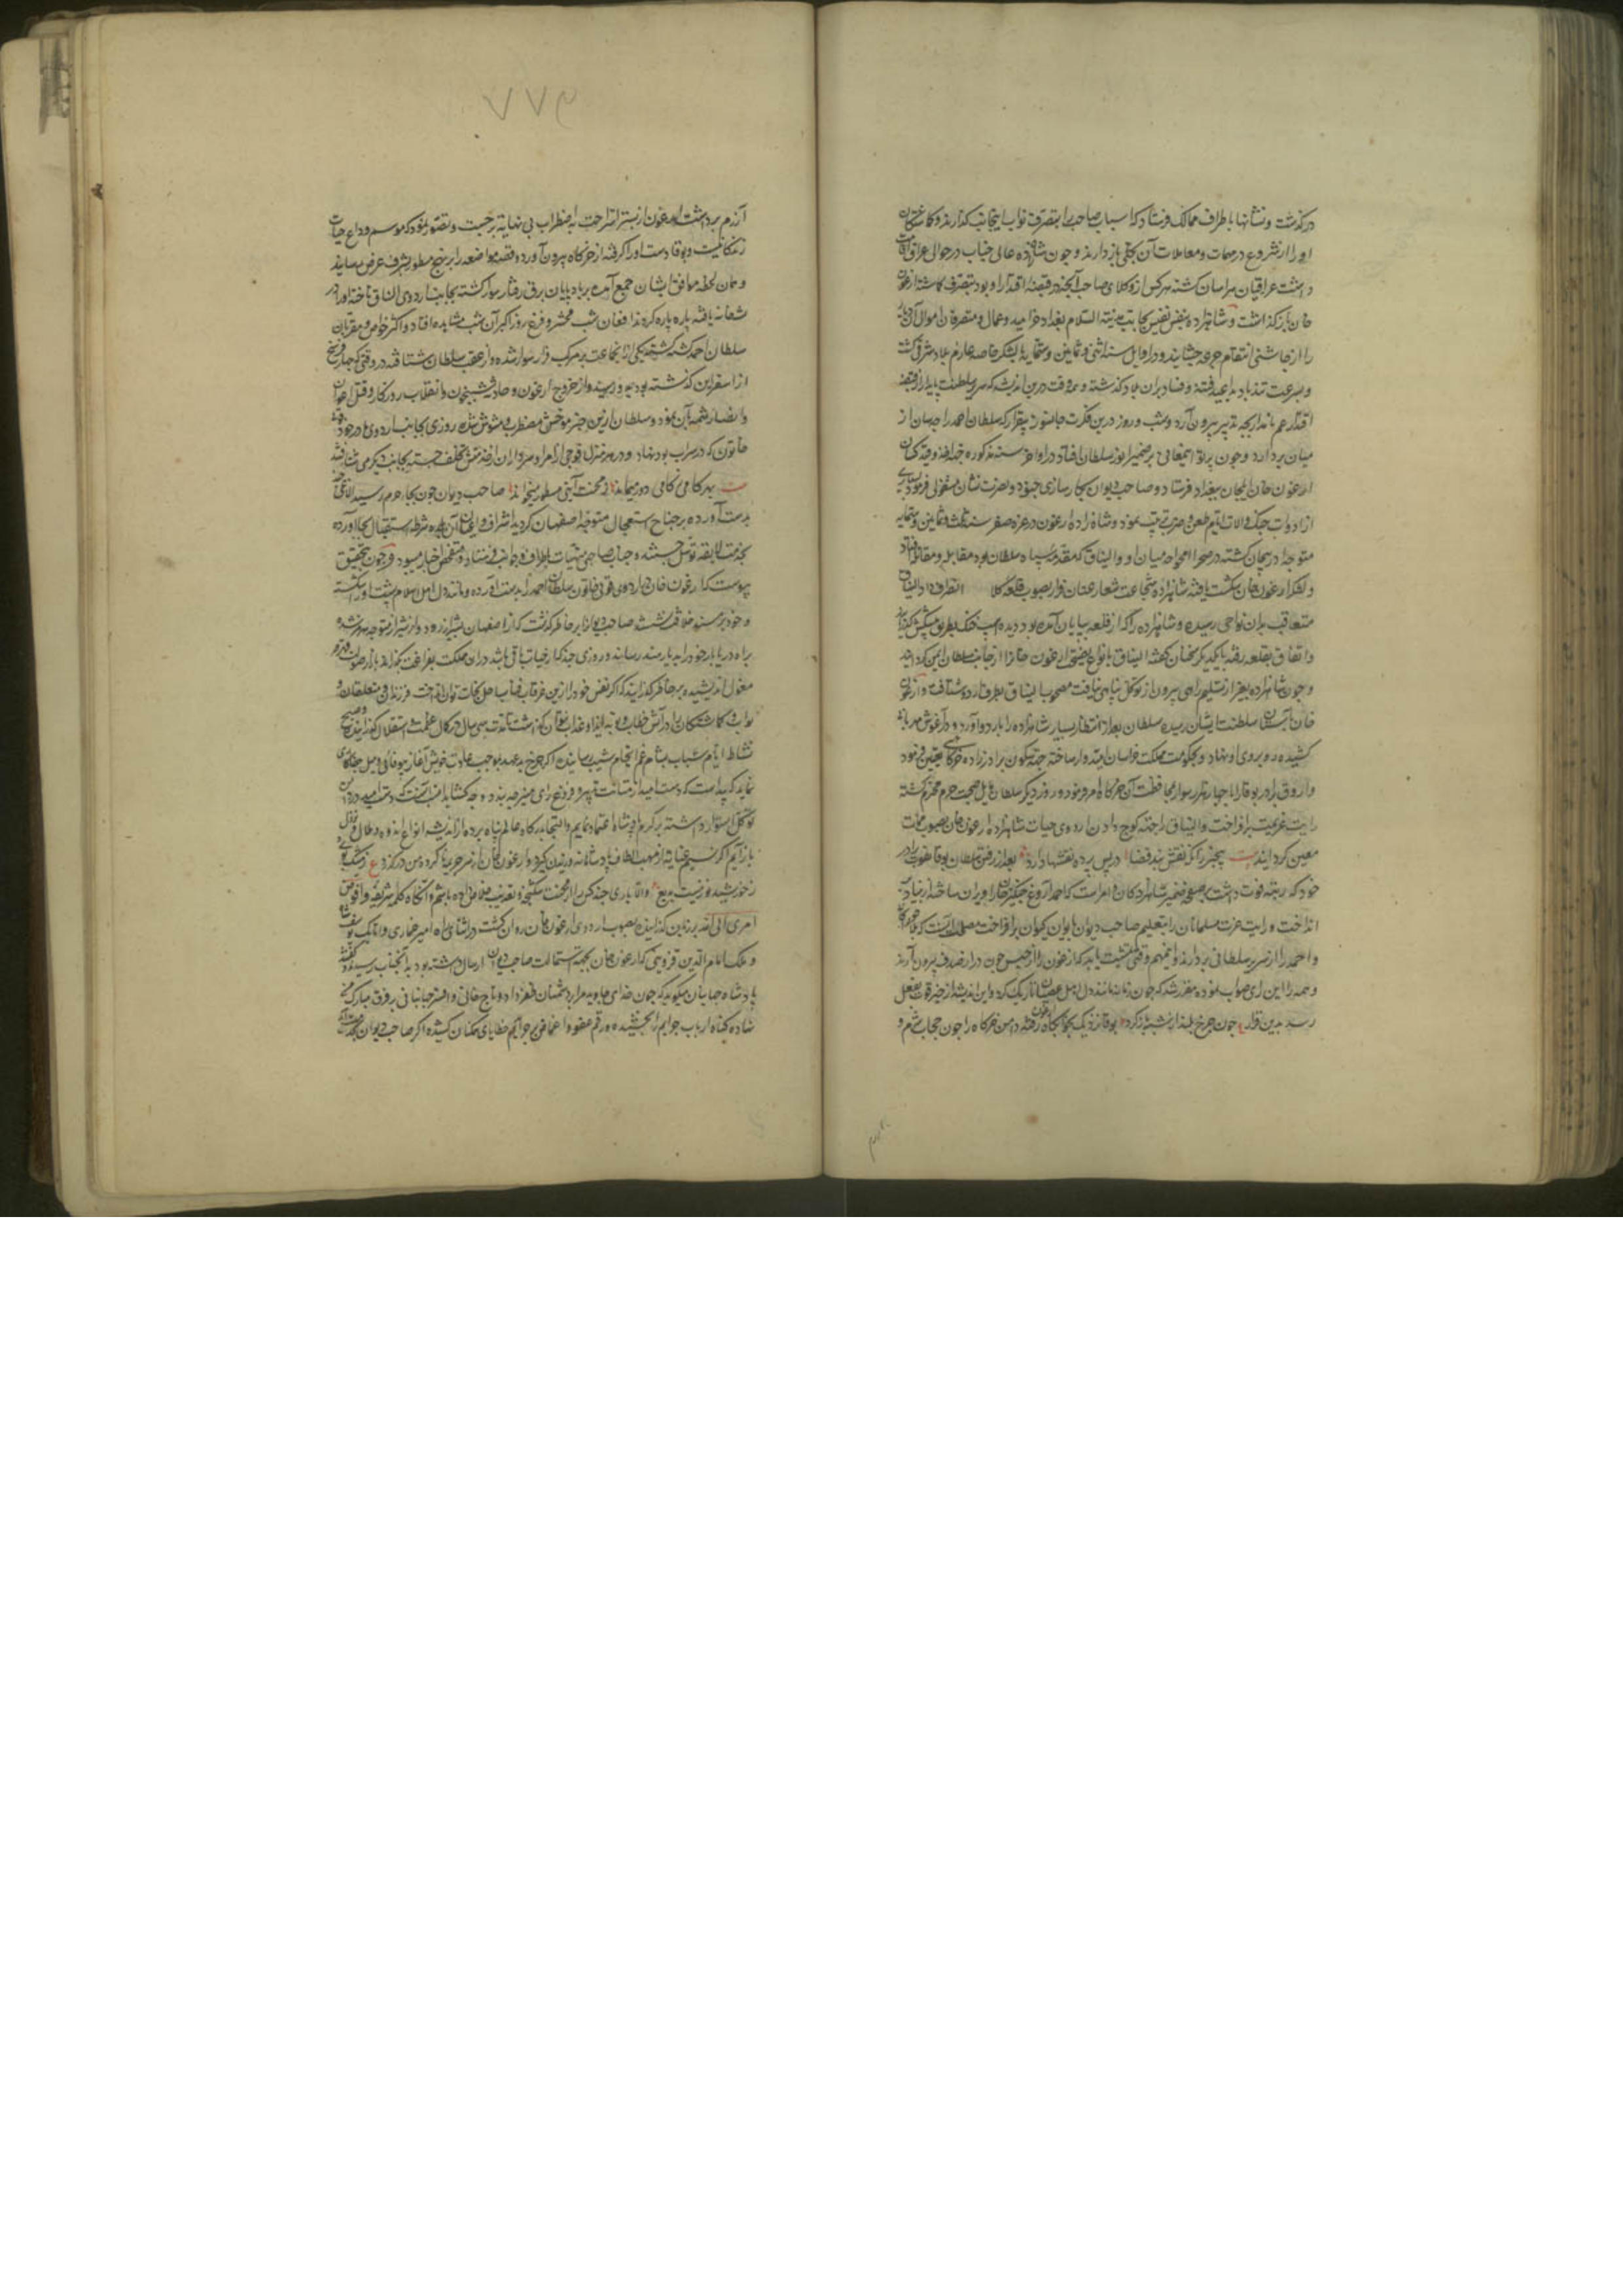 درگذشت و نشانها باطراف ممالک فرستاد که اسباب صاحب را بتصرف نواب اینجانب گذارند و گماشتگان
او را از شروع در مهمات و معاملات آن بکلی باز دارند و چون شاهزاده عالی جناب در حوالی عراق اقامت
داشت عراقیان هراسان گشته هر کس از وکلای صاحب آنچه در قبضه اقتدار او بود بتصرف گماشته ارغون
خان باز گذاشت و شاهزاده بنفس نفیس بجانب مدینة السلام بغداد خرامید و عمال و متصرفان اموال آن دیار
را از چاشنی انتقام جرعه چشانید و در اوایل سنه اثنی و ثمانین و ستمایه با لشکر خاصه عازم بلاد شرقی گشت
و بسرعت تندباد
اقتدار عم نامدار بچه تدبیر بیرون آرد و شب و روز درین فکرت جانسوز بیقرار که سلطان احمد را چسان از
میان بردارد و چون پرتو این معانی بر ضمیر انور سلطان افتاد در اواخر سنه مذکوره
ارغون خان ایلچیان ببغداد فرستاد و صاحب دیوان بکار سازی جنود و نصرت نشان مشغولی فرموده
از ادوات جنگ و آلات طعن و ضرب ترتیب نمود و شاهزاده ارغون در غره صفر سنه ثلث و ثمانین و ستمایه
متوجه آذربیجان گشته در صحرا میان او و الیناق که مقدمه سپاه سلطان بود مقابله و مقاتله افتاد
و لشکر ارغون خان شکست یافته شاهزاده شجاعت شعار عنان فرار بصوب قلعه کلا انعطاف داد و الیناق
متعاقب بدان نواحی رسید و شاهزاده را که از قلعه بپایان آمده بود دیده اسب خنک بطریق پیشکش گذرانید
و باتفاق بقلعه رفته با یکدیگر سخنان گفتند الیناق بانواع نصیحت ارغون خانرا از جانب سلطان ایمن گردانید
و چون شاهزاده بغیر از تسلیم راهی و بیرون از توکل پناهی نیافت مصحوب الیناق بطرف اردو شتافت و ارغون
خان بآستان سلطنت آشیان رسیده سلطان بعد از انتظار بسیار شاهزاده را بار داد و در آغوش مهربانی
کشیده رو بر روی او نهاد و بحکومت مملکت خراسان امیدوار ساخته جهة سکون برادرزاده خرگاهی تعیین فرمود
و اروق برادر بوقا را با چهار هزار سوار بمحافظت آن خرگاه امر فرمود و روز دیگر سلطان مایل صحبت حرم محترم گشته
رایت عزیمت برافراخت و الیناق را جهة کوچ دادن اردوی حیات شاهزاده ارغون خان بصوب ممات
معین گردانید بیت بیخبر زانکه نقش بند قضا در پس پرده نقشها دارد بعد از رفتن سلطان بوقا
خود که رتبه قوت داشت
انداخت و رایت عزت مسلمانان را بتعلیم صاحب دیوان بایوان کیوان برافراخت مصلحت آنست که
و احمد را از سریر سلطانی بردارند و این مهم وقتی تمشیت یابد که ارغون را از حبس چون در از صدف بیرون آرند
و همه را این رای صواب نموده مقرر شد که چون زمانه مانند دل اهل عصیان تاریک گردد این اندیشه از حیز قوت بفعل
رسد بدین قرار ع چون چرخ بلند از شبه تاج کرد بوقا نزدیک بخوابگاه ارغون رفته دامن خرگاه را چون حجاب شرم و

۷۷۶
آزرم برداشت ارغون از بستر استراحت باضطراب بی نهایت برجست و تصور نمود که موسم وداع حیات
زندگانیست و بوقا دست او را گرفته از خرگاه بیرون آورد و قصه مواضعه را بر نهج مسطور بشرف عرض رسانید
و همان لحظه موافقان ایشان جمع آمده بر بادپایان برق رفتار سوار گشته بجانب اردوی الناق تاختند او را در
شبانه یافته پاره پاره کردند افغان شب محشر و فزع روز اکبر آن شب مشاهده افتاد و اکثر خواص و مقربان
سلطان احمد کشته گشتند یکی از آن جماعت بر مرکب فرار سوار شده و از عقب سلطان شتافته در وقتی که چهار فرسخ
از اسفراین گذشته بود بدو رسید و از خروج ارغون و حادثه شبیخون و انقلاب روزگار و قتل اعوان
و انصار شمه بیان نمود و سلطان ازین خبر موحش مضطرب و مشوش شده روی بجانب اردوی مادر خود قوتی
خاتون که در سراب بود نهاد و در هر منزل فوجی از امرا و سرداران از خدمتش تخلف جسته بجانب دیگر می شتافتند
بیت بهر کامی ز کامی دور میماند ز محنت آیتی مسطور میخواند صاحب دیوان چون بجاجرم رسید الاغی چند
بدست آورده بر جناح استعجال متوجه اصفهان گردید اشراف و اعیان آن بلده شرط استقبال بجا آورده
بخدمت لایقه توسل جستند و جناب صاحبی منهیان باطراف و جوانب فرستاد و متفحص اخبار میبود و چون بتحقیق
پیوست که ارغون خان در اردوی قوتی خاتون سلطان احمد را بدست آورده و مانند دل اهل اسلام پشت او را شکسته
و خود بر مسند خلافت نشست صاحب دیوان را بر خاطر گذشت که از اصفهان بشیراز رود و از شیراز متوجه هرمز شده
براه دریابار خود را بدیار هند رساند و روزی چند که از حیات باقی باشد در آن مملکت بفراغت گذراند
مغول اندیشیده بر خاطر گذرانید که اگر نفس خود را ازین غرقاب فنا بساحل نجات توان انداخت فرزندان و متعلقان و
نواب و گماشتگان را در آتش خطاب و بوته ایذا و عذاب نتوان گذاشت تا مدت سی سال در کمال عظمت و استقلال گذرانیده و صبح
نشاط ایام شباب بشام غم انجام شیب رسانیده اگر چرخ بدعهد بموجب عادت خویش آغاز بیوفائی و میل جفاکاری
نماید که پیداست که دست امید از متانت تدبیر و فروغ رای منیر چه بندد و چه گشاید
توکل استوار داشته بر کرم پادشاه اعتماد نمایم و التجا بدرگاه عالم پناه برده از اندیشه انواع اندوه و ملال
بازآیم اگر نسیم عنایت از مهب الطاف پادشاهانه وزیدن گیرد و ارغون خان از سر جریمه ناکرده من درگذرد ع
ز خورشید نور نیست بدیع و الا باری چند کس را از محنت شکنجه و تعذیب خلاص داده باشم و آنگاه کلمه شریفه و افوض
امری الی الله بر زبان گذرانیده بصوب اردوی ارغون خان روان گشت در اثنای راه امیر خماری و اتابک یوسف شاه
و ملک امام الدین قزوینی که ارغون خان بجهة استمالت صاحب دیوان ارسال داشته بود بدانجناب رسیده گفتند
پادشاه جهانیان میگوید که چون خدای جاوید مرا بر دشمنان ظفر داد و تاج خانی و افسر جهانبانی بر فرق مبارک من
نهاده گناه ارباب جرایم را بخشیده و رقم عفو و اغماض بر جرایم خطایای همکنان کشیده اگر صاحب دیوان